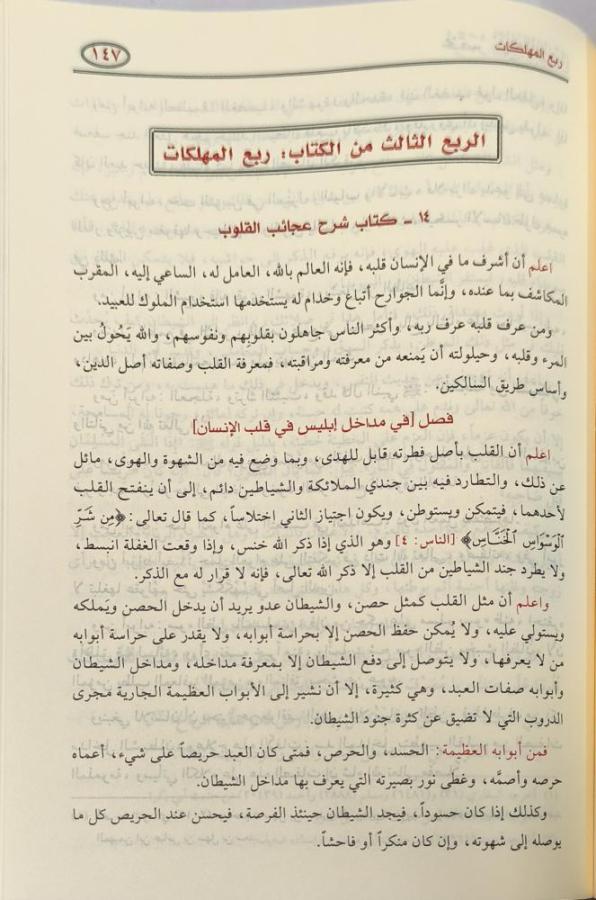 ربع المهلكات
١٤٧
الربع الثالث من الكتاب: ربع المهلكات
١٤ - كتاب شرح عجائب القلوب
اعلم أن أشرف ما في الإنسان قلبه، فإنه العالم بالله، العامل له، الساعي إليه، المقرب
المكاشف بما عنده، وإنَّما الجوارح أتباع وخدام له يستخدمها استخدام الملوك للعبيد.
ومن عرف قلبه عرف ربه، وأكثر الناس جاهلون بقلوبهم ونفوسهم، والله يَحُولُ بين
المرء وقلبه، وحيلولته أن يَمنعه من معرفته ومراقبته، فمعرفة القلب وصفاته أصل الدين،
وأساس طريق السالكين.
فصل [في مداخل إبليس في قلب الإنسان]
اعلم أن القلب بأصل فطرته قابل للهدى، وبما وضع فيه من الشهوة والهوى، مائل
عن ذلك، والتطارد فيه بين جندي الملائكة والشياطين دائم، إلى أن ينفتح القلب
لأحدهما، فيتمكن ويستوطن، ويكون اجتياز الثاني اختلاساً، كما قال تعالى: ﴿مِن شَرِّ
ٱلْوَسْوَاسِ ٱلْخَنَّاسِ﴾ [الناس: ٤] وهو الذي إذا ذكر الله خنس، وإذا وقعت الغفلة انبسط،
ولا يطرد جند الشياطين من القلب إلا ذكر الله تعالى، فإنه لا قرار له مع الذكر.
واعلم أن مثل القلب كمثل حصن، والشيطان عدو يريد أن يدخل الحصن ويَملكه
ويستولي عليه، ولا يُمكن حفظ الحصن إلا بحراسة أبوابه، ولا يقدر على حراسة أبوابه
من لا يعرفها، ولا يتوصل إلى دفع الشيطان إلا بمعرفة مداخله، ومداخل الشيطان
وأبوابه صفات العبد، وهي كثيرة، إلا أن نشير إلى الأبواب العظيمة الجارية مجرى
الدروب التي لا تضيق عن كثرة جنود الشيطان.
فمن أبوابه العظيمة: الحسد، والحرص، فمتى كان العبد حريصاً على شيء، أعماه
حرصه وأصمَّه، وغطى نور بصيرته التي يعرف بها مداخل الشيطان.
وكذلك إذا كان حسوداً، فيجد الشيطان حينئذ الفرصة، فيحسن عند الحريص كل ما
يوصله إلى شهوته، وإن كان منكراً أو فاحشاً.